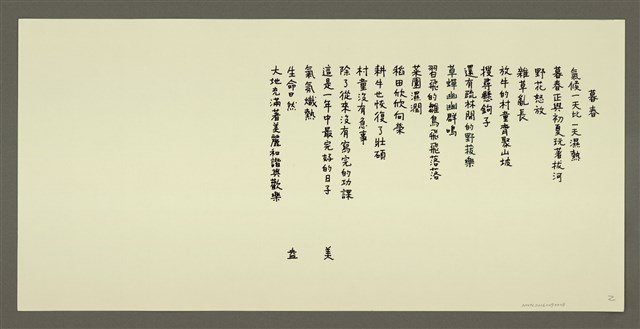 暮春
氣候一天比一天濕熱
暮春正與初夏玩著拔河
野花怒放
雜草亂長
放牛的村童齊聚山坡
搜尋懸鉤子
還有疏林間的野菝樂
草蟬幽幽群鳴
習飛的雛鳥飛飛落落
菜園濕潤
稻田欣欣向榮
耕牛也恢復了壯碩
村童沒有急事
除了從來沒有寫完的功課
這是一年中最完好的日子 美
氣氛熾熱
生命昂然 益
大地充滿著美麗和諧與歡樂
2